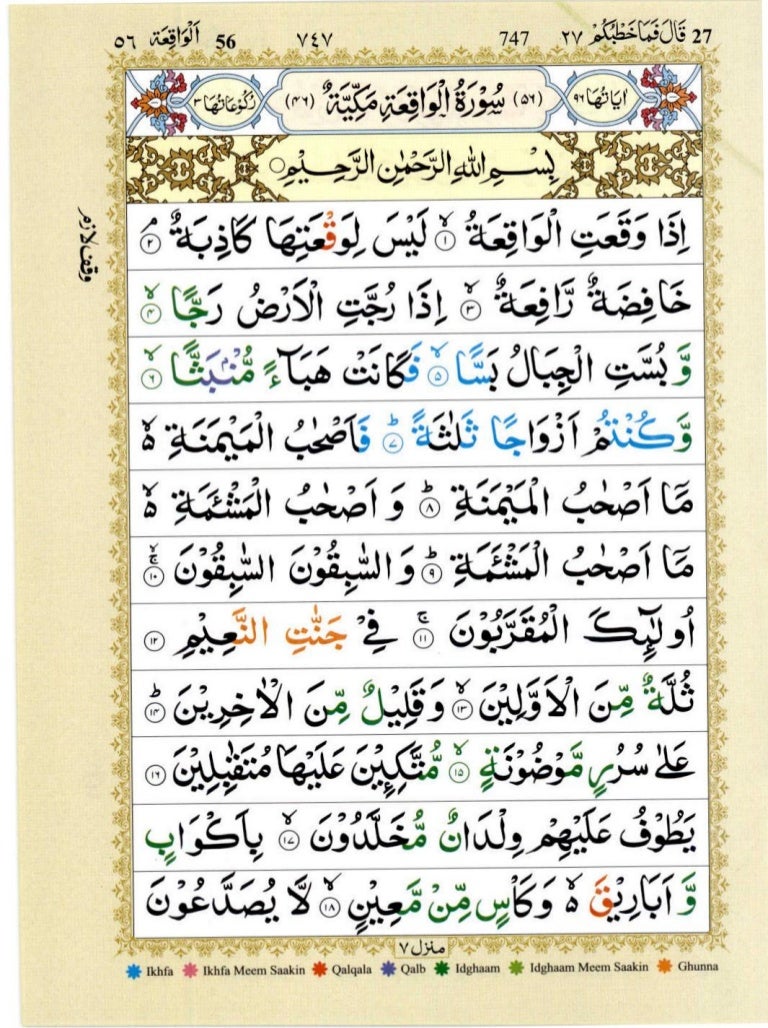 27 قَالَ فَمَا خَطْبُكُمْ ٢٧ 747 ٧٤٧ 56 اَلْوَاقِعَة ٥٦
اٰيَاتُهَا ٩٦ (٥٦) سُوْرَةُ الْوَاقِعَةِ مَكِّيَّةٌ (٤٦) رُكُوْعَاتُهَا ٣
بِسْمِ اللهِ الرَّحْمٰنِ الرَّحِيْمِ
وقف لازم
اِذَا وَقَعَتِ الْوَاقِعَةُ ۙ‏ ١ لَيْسَ لِوَقْعَتِهَا كَاذِبَةٌ ۘ‏ ٢
خَافِضَةٌ رَّافِعَةٌ ۙ‏ ٣ اِذَا رُجَّتِ الْاَرْضُ رَجًّا ۙ‏ ٤
وَّ بُسَّتِ الْجِبَالُ بَسًّا ۙ‏ ٥ فَكَانَتْ هَبَآءً مُّنْۢبَثًّا ۙ‏ ٦
وَّكُنْتُمْ اَزْوَاجًا ثَلٰثَةً ؕ‏ ٧ فَاَصْحٰبُ الْمَيْمَنَةِ ۙ۬
مَاۤ اَصْحٰبُ الْمَيْمَنَةِ ؕ‏ ٨ وَ اَصْحٰبُ الْمَشْـَٔمَةِ ۙ۬
مَاۤ اَصْحٰبُ الْمَشْـَٔمَةِ ؕ‏ ٩ وَ السّٰبِقُوْنَ السّٰبِقُوْنَ ۚۙ‏ ١٠
اُولٰٓئِكَ الْمُقَرَّبُوْنَ ۚ‏ ١١ فِيْ جَنّٰتِ النَّعِيْمِ ١٢
ثُلَّةٌ مِّنَ الْاَوَّلِيْنَ ۙ‏ ١٣ وَقَلِيْلٌ مِّنَ الْاٰخِرِيْنَ ؕ‏ ١٤
عَلٰى سُرُرٍ مَّوْضُوْنَةٍ ۙ‏ ١٥ مُّتَّكِـِٕيْنَ عَلَيْهَا مُتَقٰبِلِيْنَ ١٦
يَطُوْفُ عَلَيْهِمْ وِلْدَانٌ مُّخَلَّدُوْنَ ۙ‏ ١٧ بِاَكْوَابٍ
وَّ اَبَارِيْقَ ۙ۬ وَكَاْسٍ مِّنْ مَّعِيْنٍ ۙ‏ ١٨ لَّا يُصَدَّعُوْنَ
منزل ٧
Ikhfa Ikhfa Meem Saakin Qalqala Qalb Idghaam Idghaam Meem Saakin Ghunna